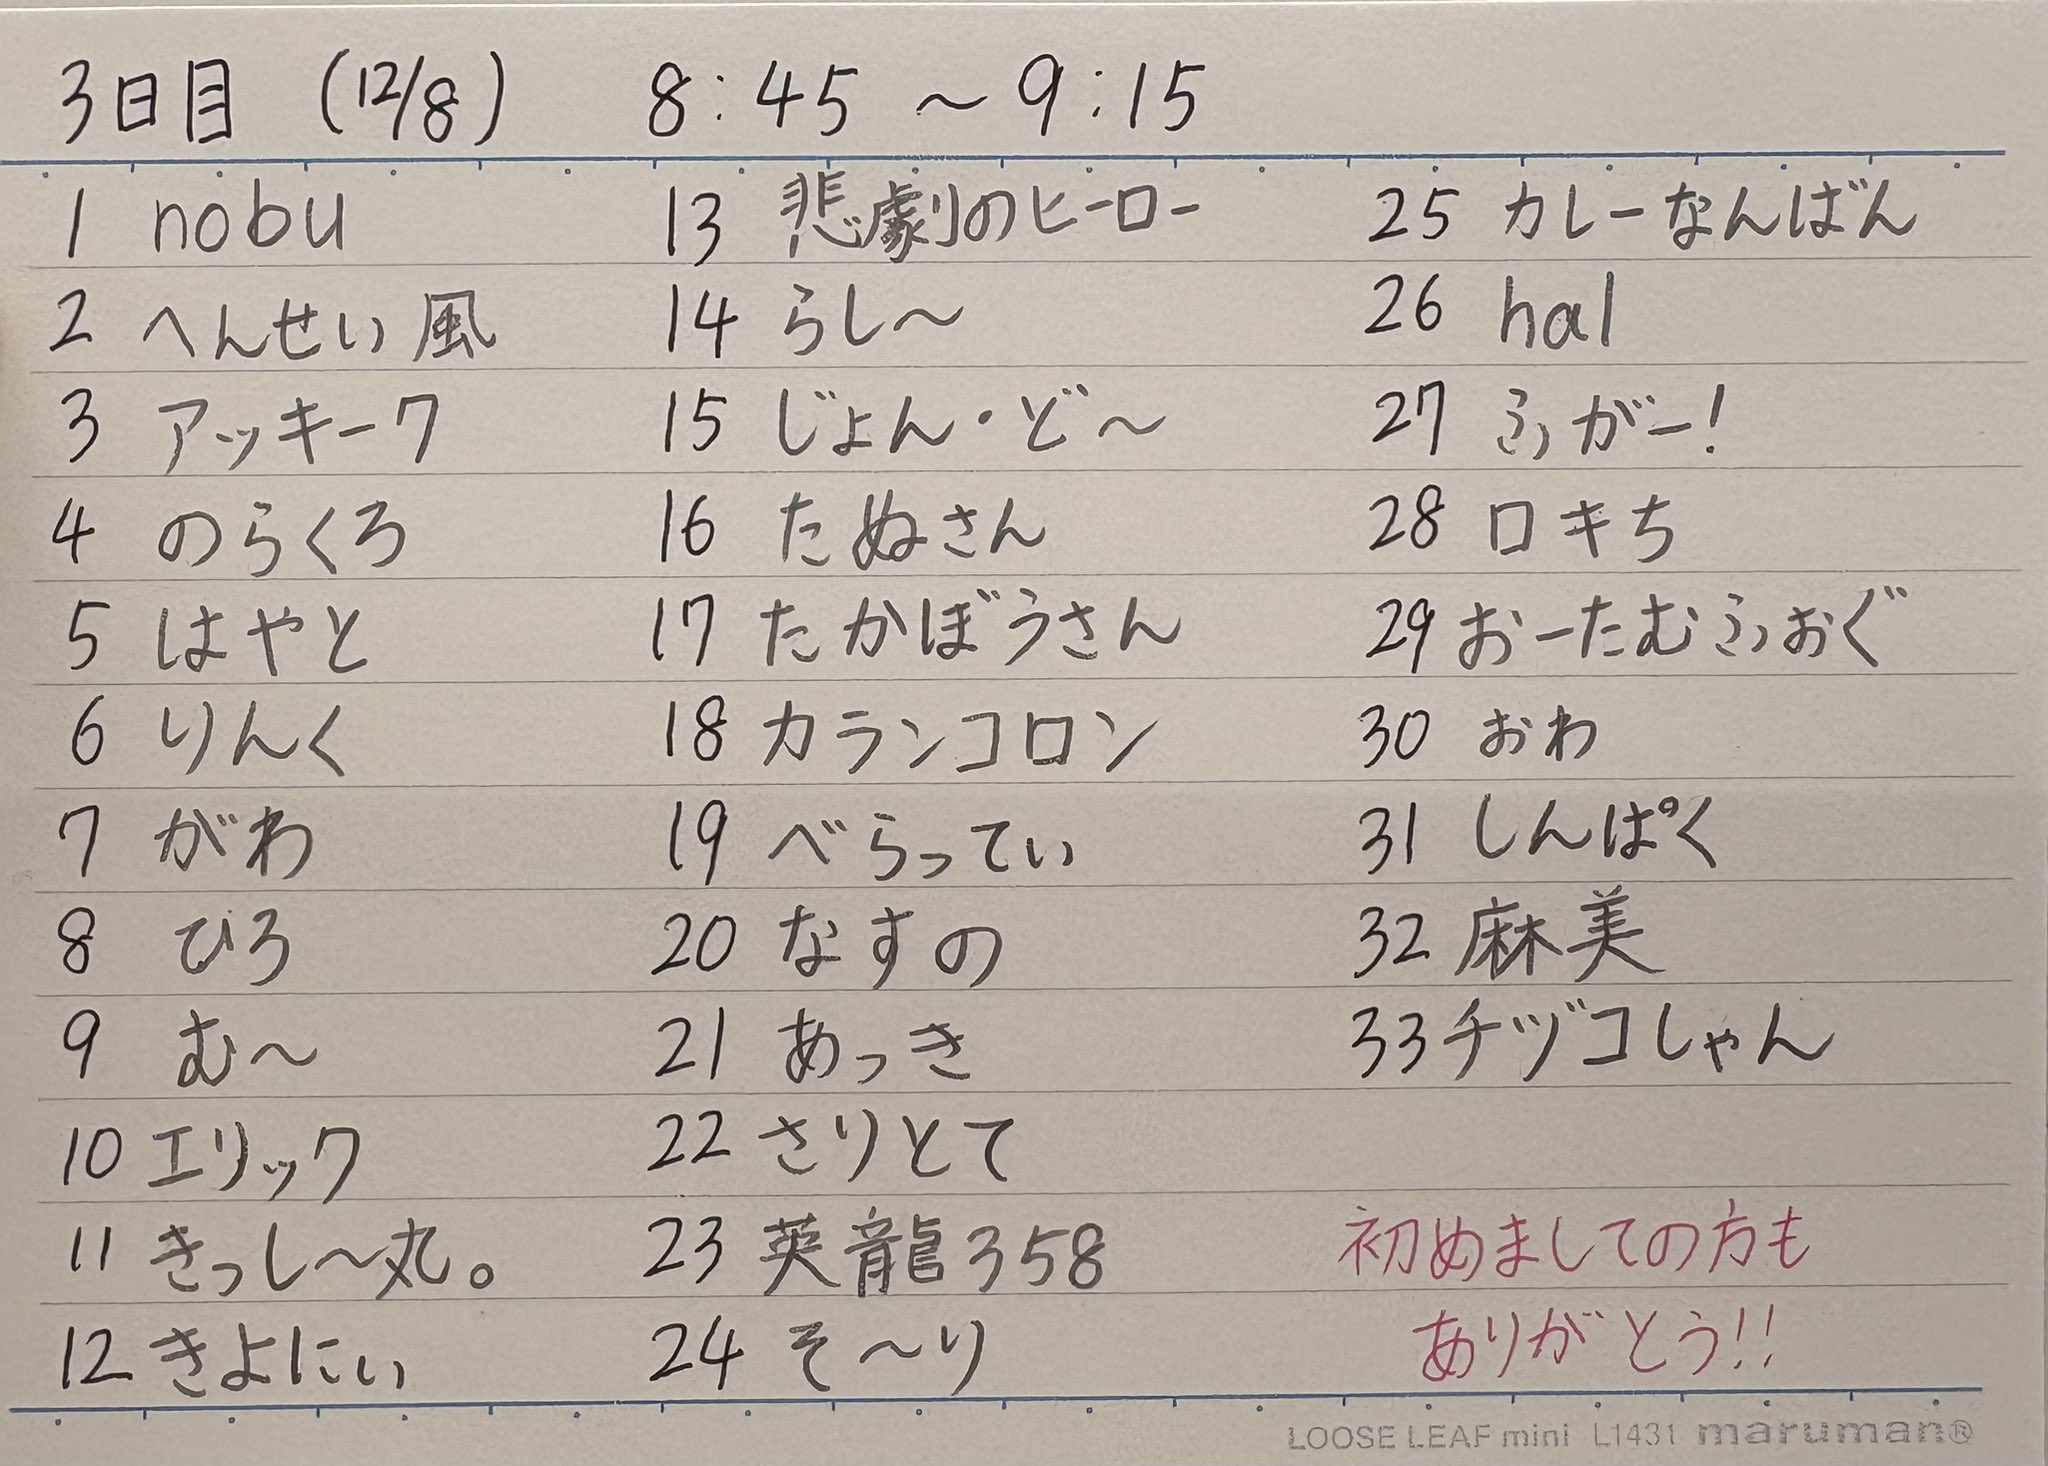 3日目 (12/8) 8:45 ~ 9:15
1 nobu
2 へんせい風
3 アッキーワ
4 のらくろ
5 はやと
6 りんく
7 がわ
8 ひろ
9 む〜
10 エリック
11 きっし〜丸。
12 きよにぃ
13 悲劇のヒーロー
14 らし〜
15 じょん・ど〜
16 たぬさん
17 たかぼうさん
18 カランコロン
19 べらってぃ
20 なすの
21 あっき
22 さりとて
23 英龍358
24 そ〜り
25 カレーなんばん
26 hal
27 ふがー!
28 ロキち
29 おーたむふぉぐ
30 おわ
31 しんぱく
32 麻美
33 チヅコしゃん
初めましての方も
ありがとう!!
LOOSE LEAF mini L1431 maruman®